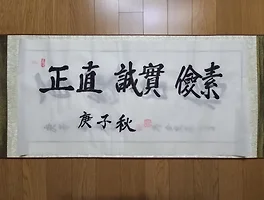 正直 誠實 儉素
庚子秋